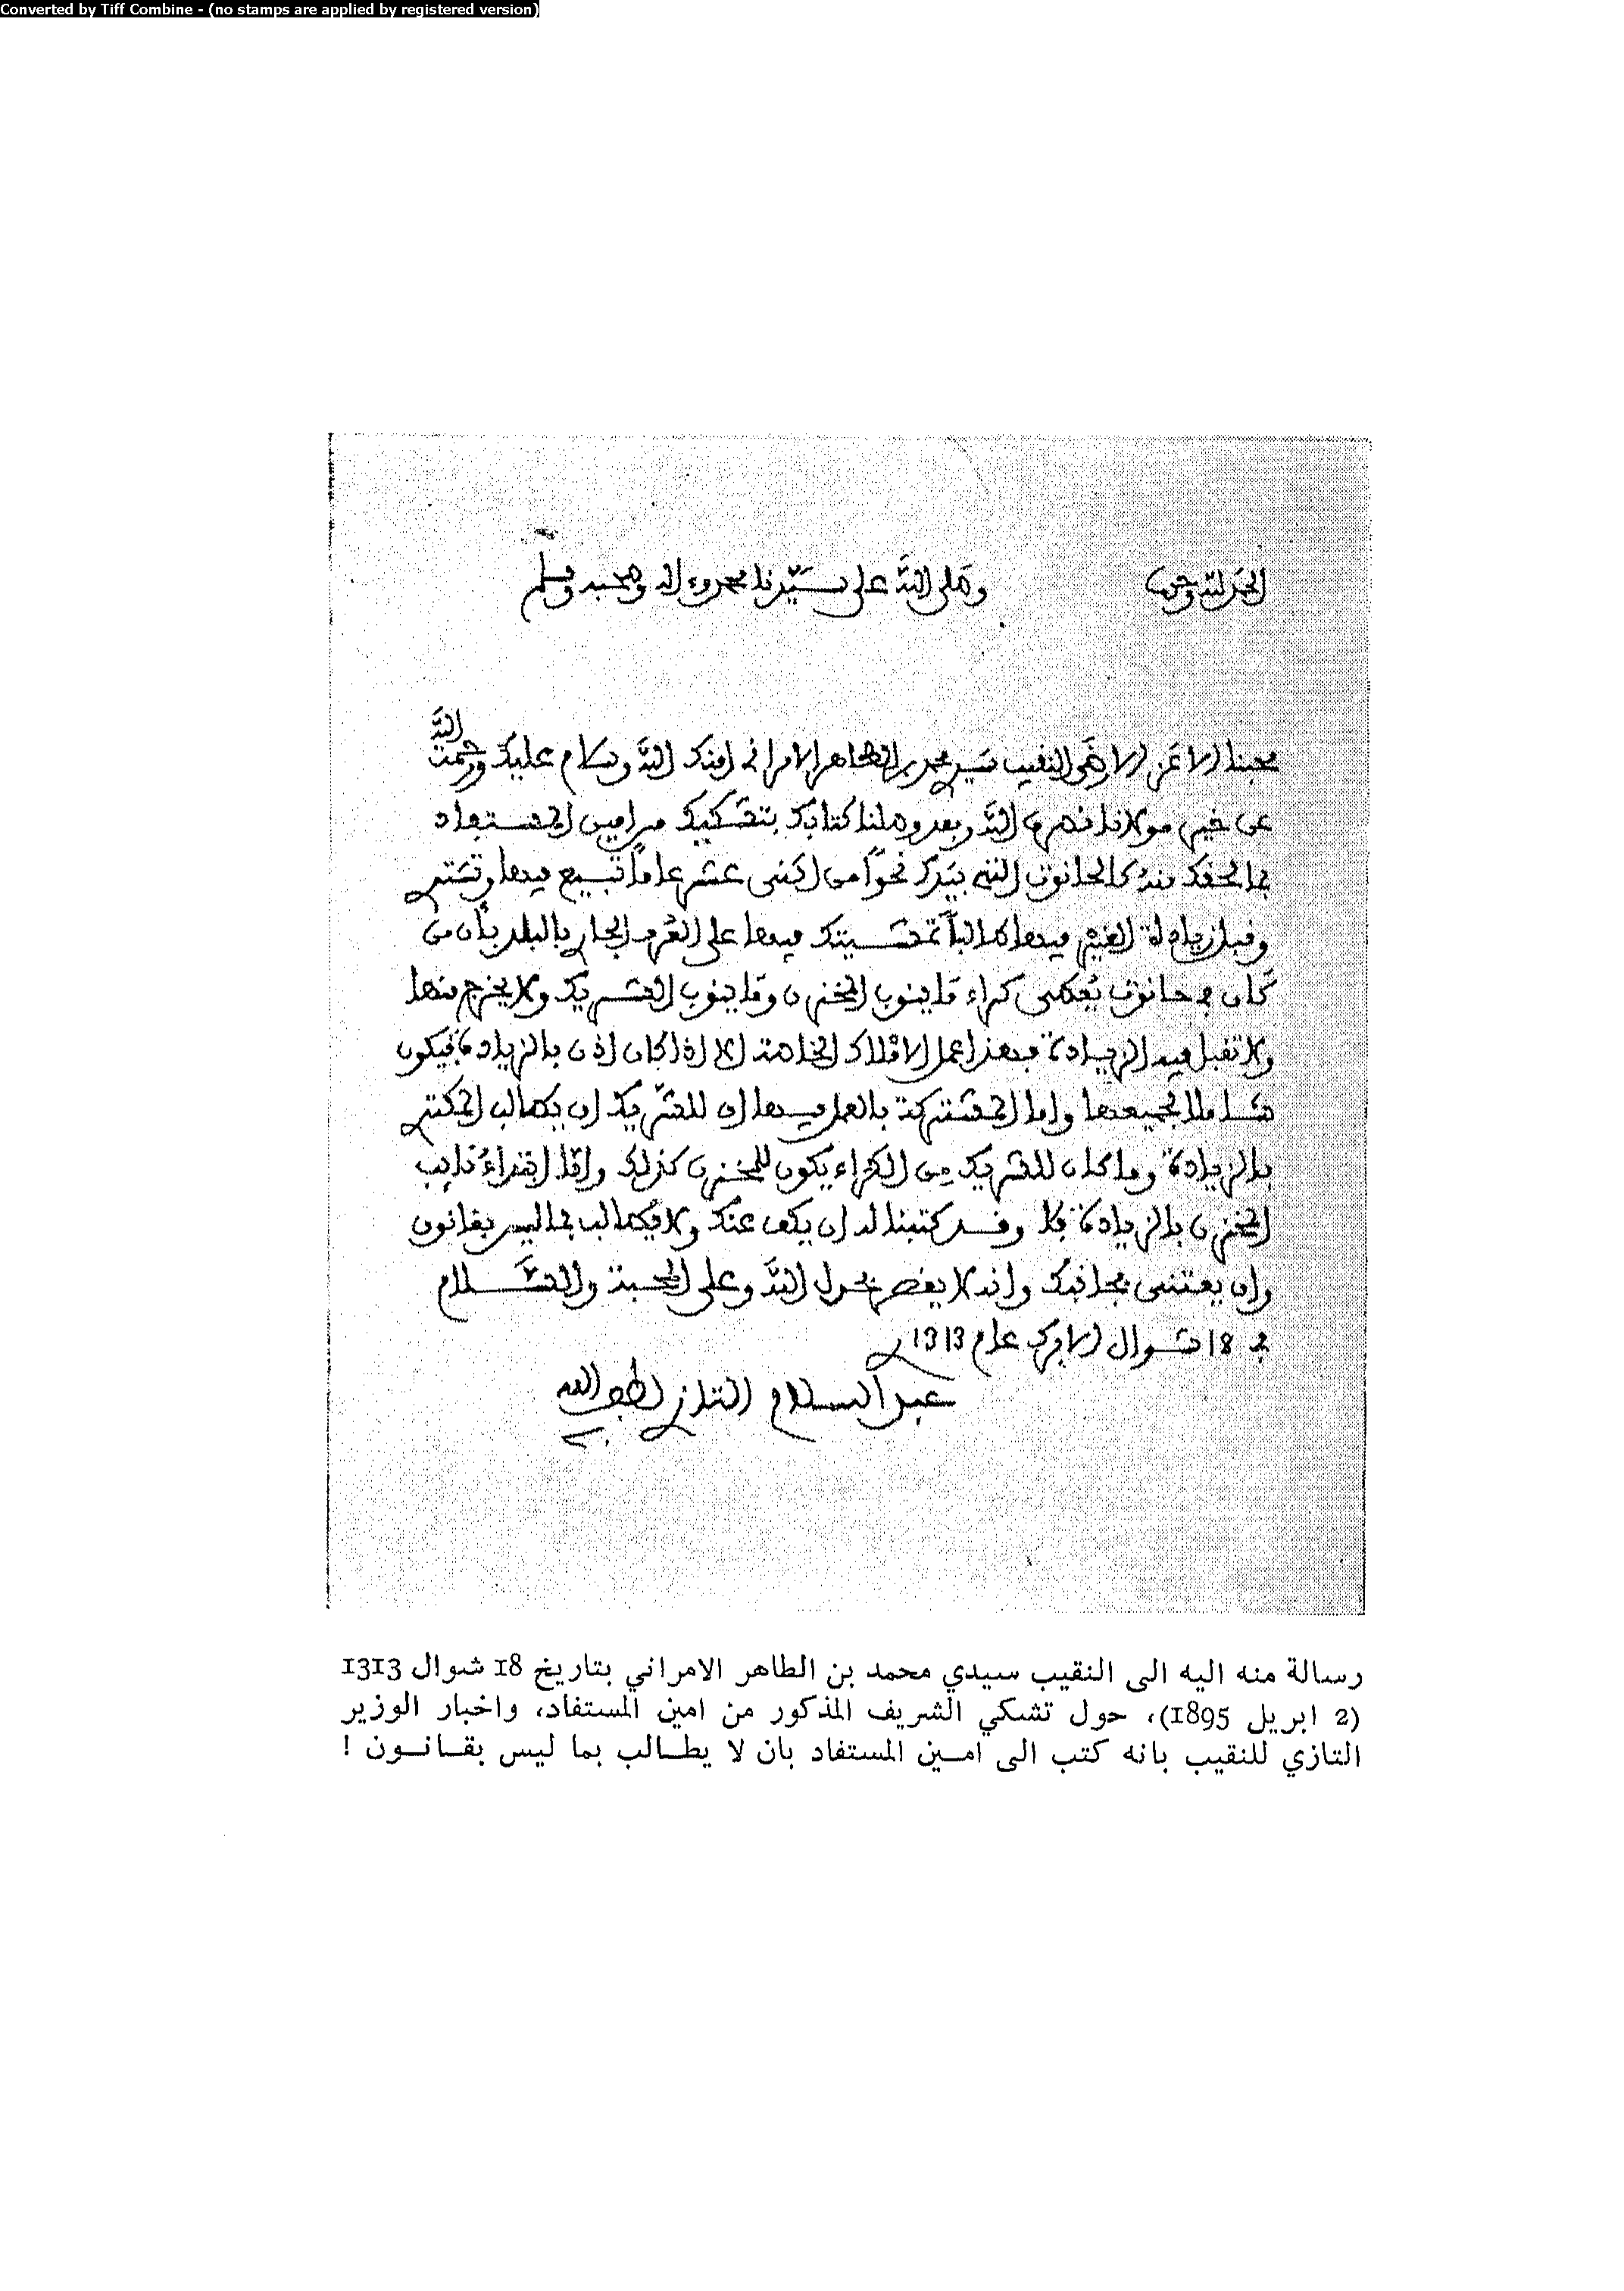 Converted by Tiff Combine - (no stamps are applied by registered version)
الحمد لله وحده وصلى الله على سيدنا محمد وءاله وصحبه وسلم
محبنا الاعز الارضى النقيب سيدي محمد بن الطاهر الامراني امنك الله وسلام عليك ورحمت الله
عن خير مولانا نصره الله وبعد وصلنا كتابك بتشكيك من امين المستفاد
بما لحقك منه كالحانوت التي بيدك نحوا من اثنى عشر عاما تبيع فيها وتشتري
وقبل زيادة الغير فيها طالبا تمشيتك فيها على العرف الجاري بالبلد بأن من
كان بحانوت يعطى كراء ما ينوب المخزن وما ينوب الشريك ولا يخرج منها
ولا تقبل فيه الزيادة فهذا عمل الاملاك الخاصة الا اذا كان اذن بالزيادة فيكون
شاملا لجميعها واما المشتركة بالعمل فيها ان للشريك ان يطالب المكتري
بالزيادة وما كان للشريك من الكراء يكون للمخزن كذلك واما ابتداء نايب
المخزن بالزيادة فلا وقد كتبنا له ان يكف عنك ولا يطالب بما ليس بقانون
وان يعتنى بجانبك وانه لا يقصر بحول الله وعلى المحبة والسلام
في 18 شوال الابرك عام 1313
عبد السلام التازي لطف الله به
رسالة منه اليه الى النقيب سيدي محمد بن الطاهر الامراني بتاريخ 18 شوال 1313
(2 ابريل 1895)، حول تشكي الشريف المذكور من امين المستفاد، واخبار الوزير
التازي للنقيب بانه كتب الى امين المستفاد بان لا يطالب بما ليس بقانون !